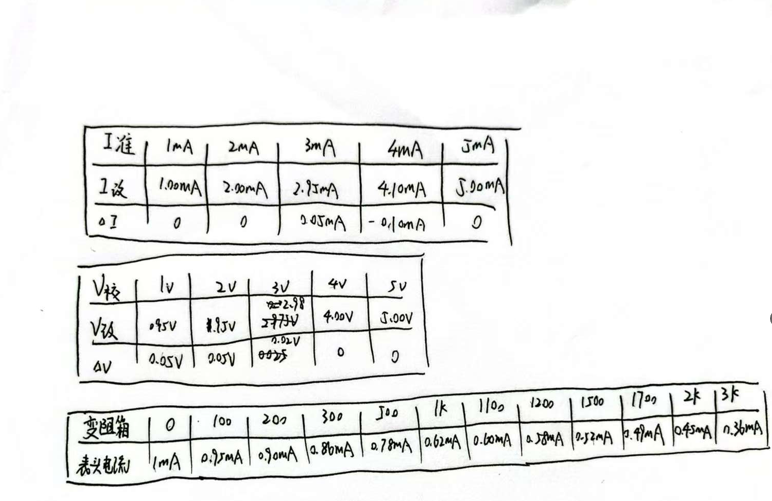 I准 1mA 2mA 3mA 4mA 5mA
I设 1.00mA 2.00mA 2.95mA 4.10mA 5.00mA
ΔI 0 0 0.05mA -0.10mA 0
V校 1V 2V 3V 4V 5V
2.98
V设 0.95V 1.95V 4.00V 5.00V
0.02V
ΔV 0.05V 0.05V 0 0
变阻箱 0 100 200 300 500 1k 1100 1200 1500 1700 2k 3k
表头电流 1mA 0.95mA 0.90mA 0.86mA 0.78mA 0.62mA 0.60mA 0.58mA 0.52mA 0.49mA 0.45mA 0.36mA